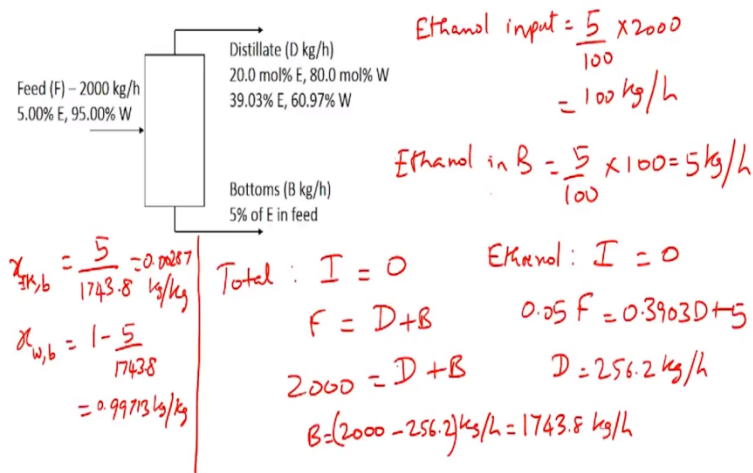 Feed (F) – 2000 kg/h
5.00% E, 95.00% W
Distillate (D kg/h)
20.0 mol% E, 80.0 mol% W
39.03% E, 60.97% W
Bottoms (B kg/h)
5% of E in feed
Ethanol input = 5/100 × 2000
= 100 kg/h
Ethanol in B = 5/100 × 100 = 5 kg/h
x = 5/1743.8 = 0.00287 kg/kg
x w,b = 1 - 5/1743.8
= 0.99713 kg/kg
Total : I = 0
F = D+B
2000 = D+B
B=(2000 – 256.2) kg/h = 1743.8 kg/h
Ethanol : I = 0
0.05 F = 0.3903D+5
D = 256.2 kg/h